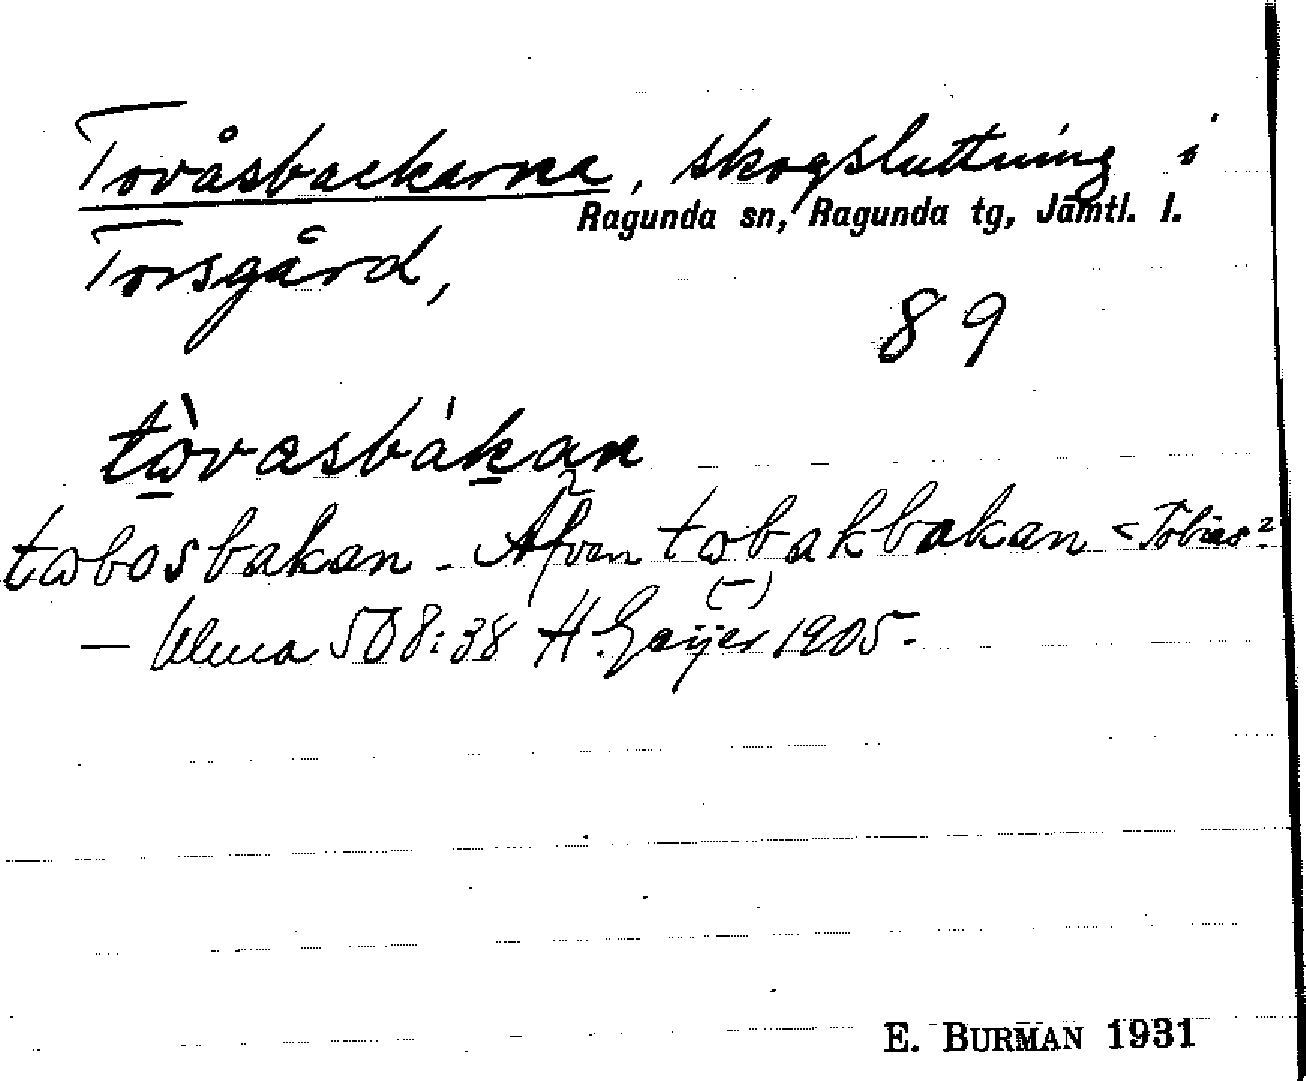 Tovåsbackarna, skogsluttning i
Ragunda sn, Ragunda tg, Jämtl. l.
Torsgård,
89
tòvasbákan
tobosbakan - Äfven tobakbakan < Tobias?
(–)
— Ulma 508:38 H. Geijer 1905.
E. BURMAN 1931